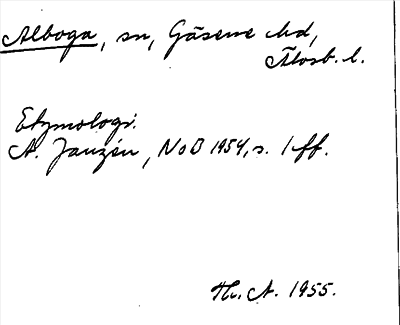 Alboga, sn, Gäsene hd,
Älvsb. l.
Etymologi.
A. Janzén, NoB 1954, s. 1 ff.
Th. A. 1955.